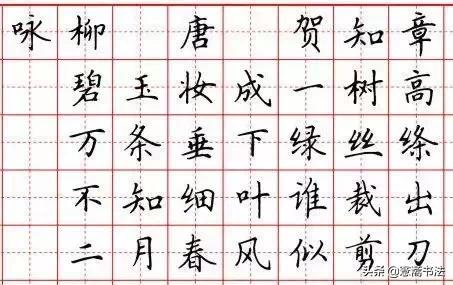 咏柳 唐 贺知章
碧玉妆成一树高
万条垂下绿丝绦
不知细叶谁裁出
二月春风似剪刀
头条 @书法